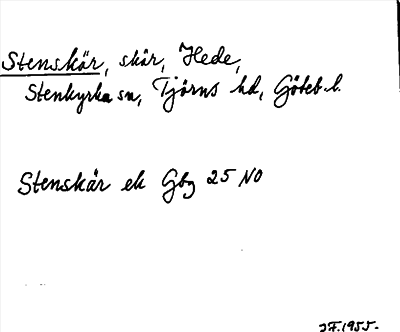 Stenskär, skär, Hede,
Stenkyrka sn, Tjörns hd, Göteb. l.
Stenskär ek Gbg 25 NO
JF. 1955.